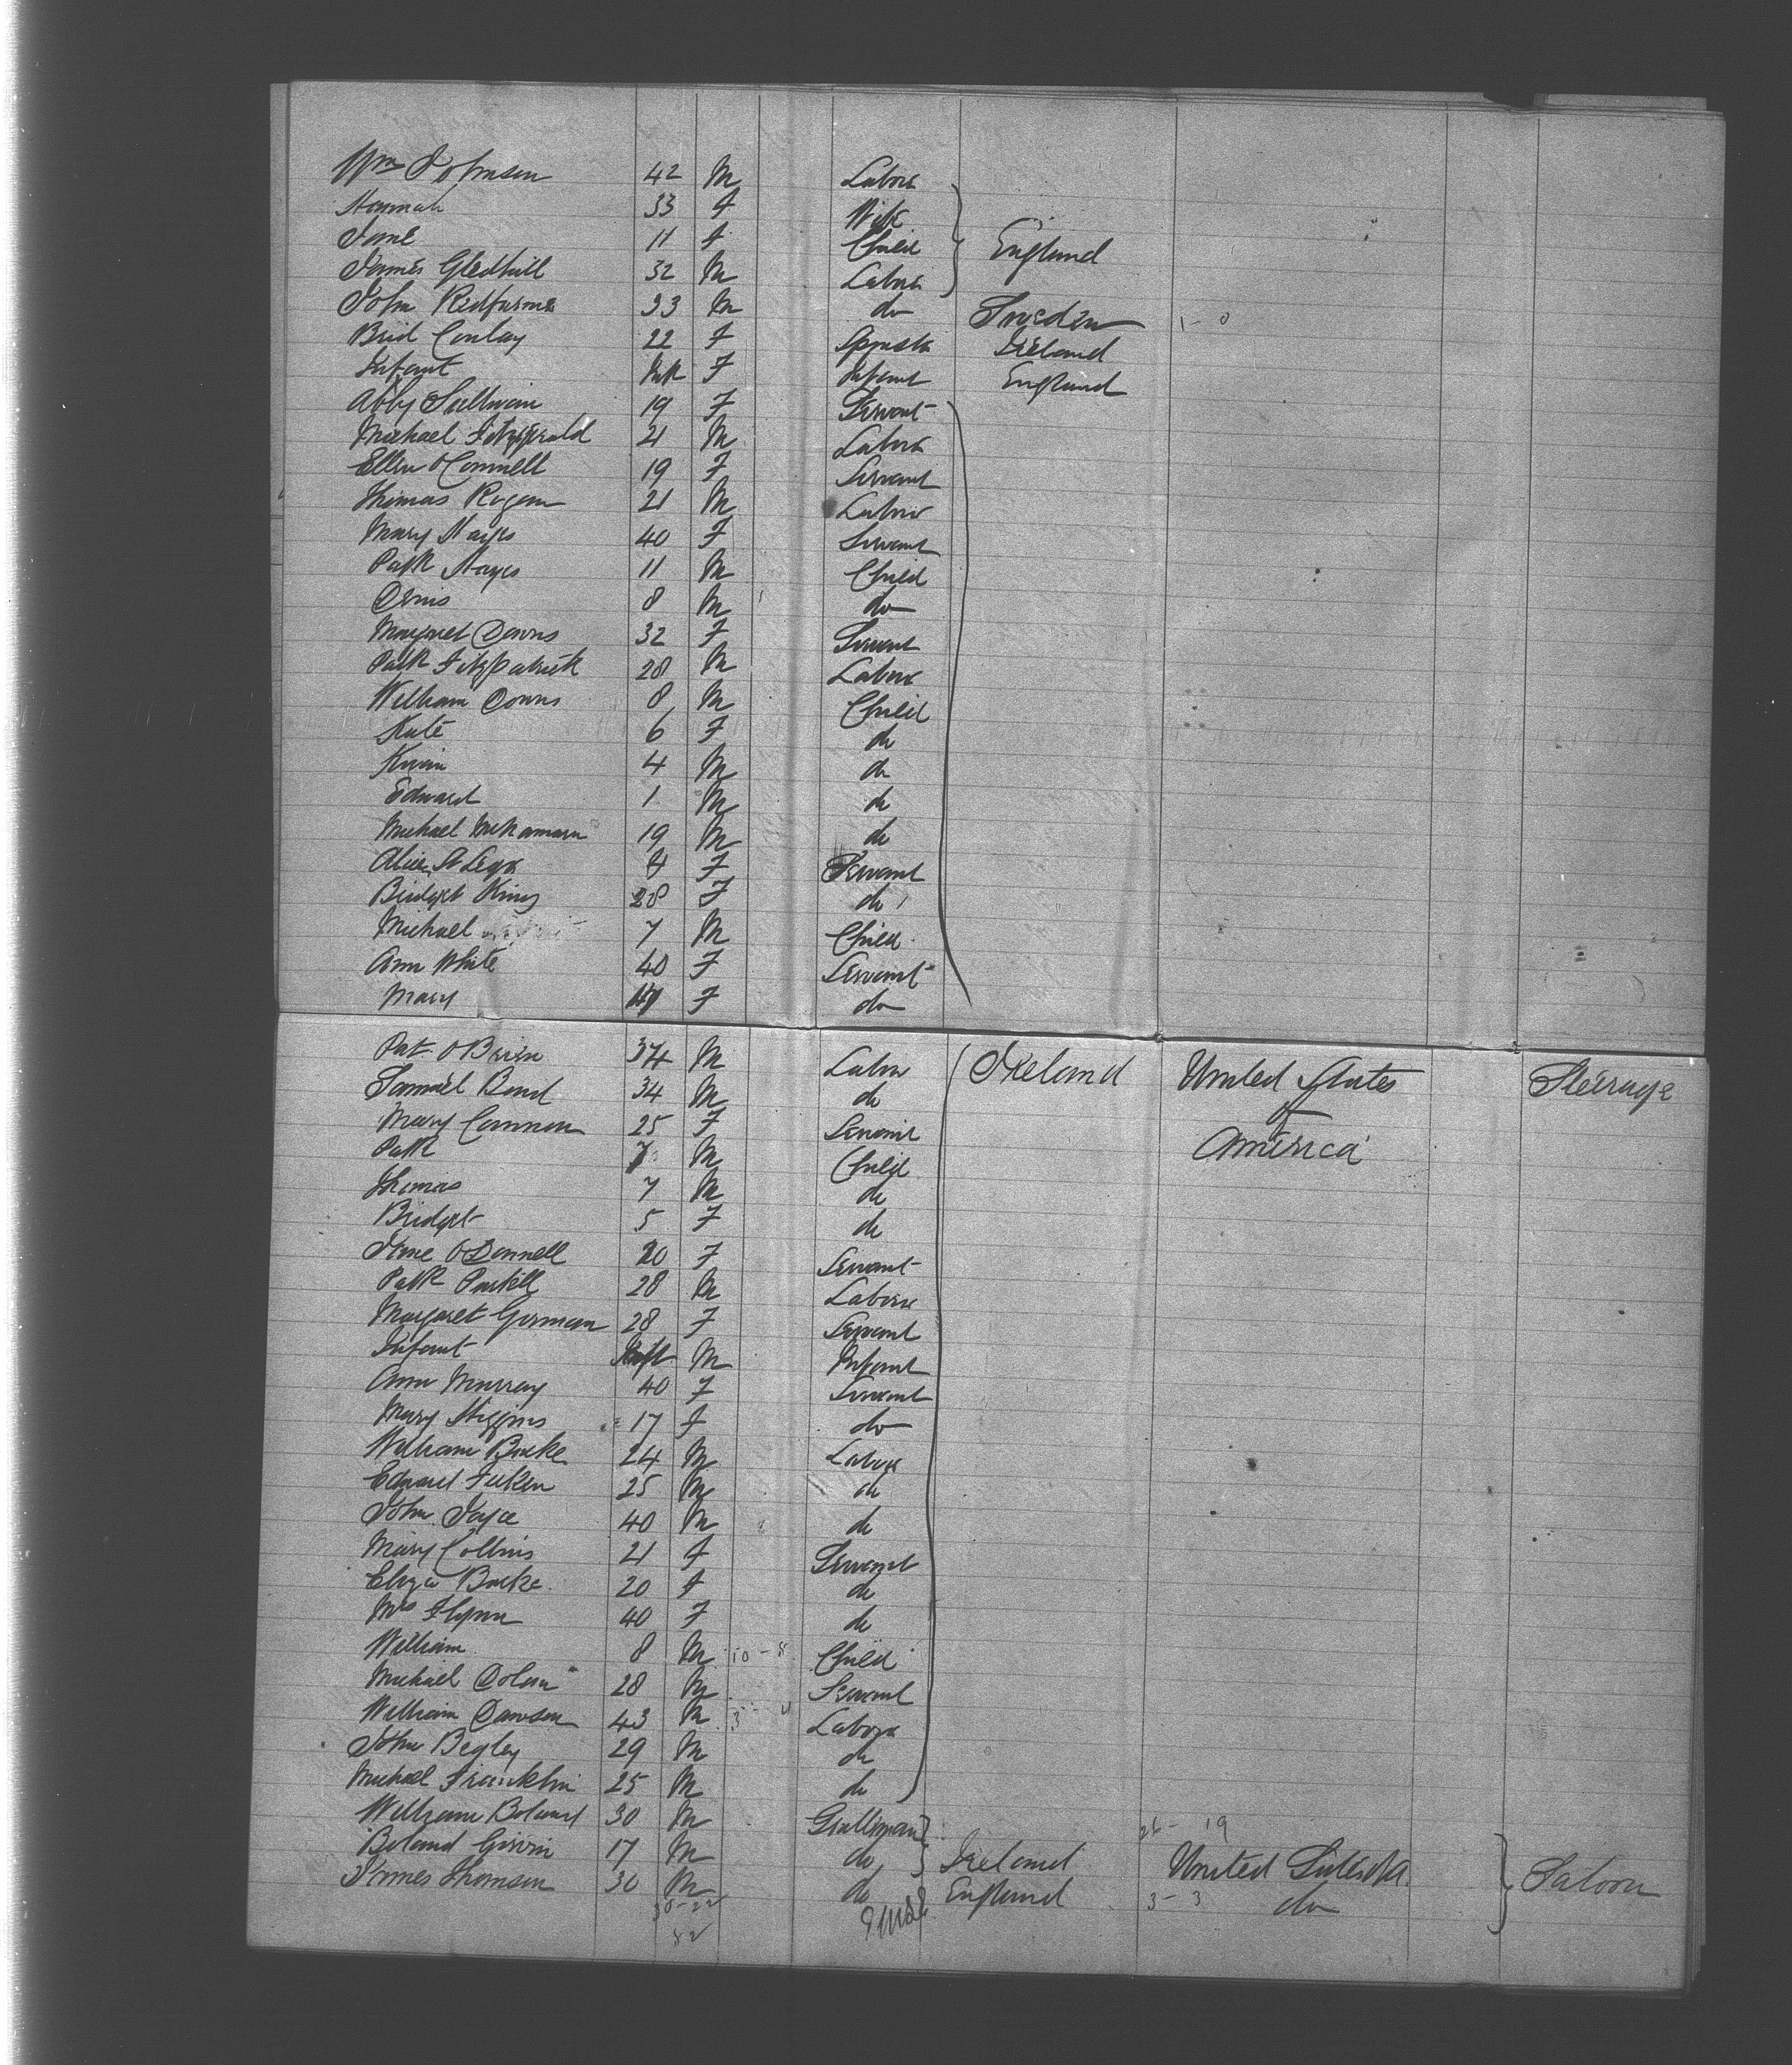 Wm Johnson 42 M Labor
Hannah 33 F Wife
Jane 11 F Child England
James Gledhill 32 M Labor
John Redfurne 33 M do Sweden 1-0
Brid Conlay 22 F Spinstr Ireland
Infant Inft F Infant England
Abby Sullivan 19 F Servant
Michael Fitzgerald 21 M Labor
Ellen O'Connell 19 F Servant
Thomas Rogan 21 M Labor
Mary Hayes 40 F Servant
Patk Hayes 11 M Child
Denis 8 M do
Margaret Downs 32 F Servant
Patk Fitzpatrick 28 M Labor
William Downs 8 M Child
Kate 6 F do
Kivin 4 M do
Edward 1 M do
Michael McNamara 19 M do
Alice St Leger F Servant
Bridget King 28 F do
Michael 7 M Child
Ann White 40 F Servant
Mary F do
Pat O'Brien 34 M Labor Ireland United States Steerage
Samuel Bond 34 M do of
Mary Cannon 25 F Servant America
Patk M Child
Thomas 7 M do
Bridget 5 F do
Jane O'Donnell 20 F Servant
Patk Purtill 28 M Labor
Margaret Gorman 28 F Servant
Infant Inft M Infant
Ann Murray 40 F Servant
Mary Higgins 17 F do
William Burke 24 M Labor
Edward 25 M do
John Joyce 40 M do
Mary Collins 21 F Servant
Eliza Burke 20 F do
Mrs Flynn 40 F do
William 8 M Child
Michael Dolan 28 M Servant
William Dawson 43 M Labor
John Begley 29 M do
Michael Franklin 25 M do
William Boland 30 M Gentleman 26-19
Boland Girvin 17 M do Ireland United States Saloon
James Thomson 30 M do England 3-3 do
30-22
52